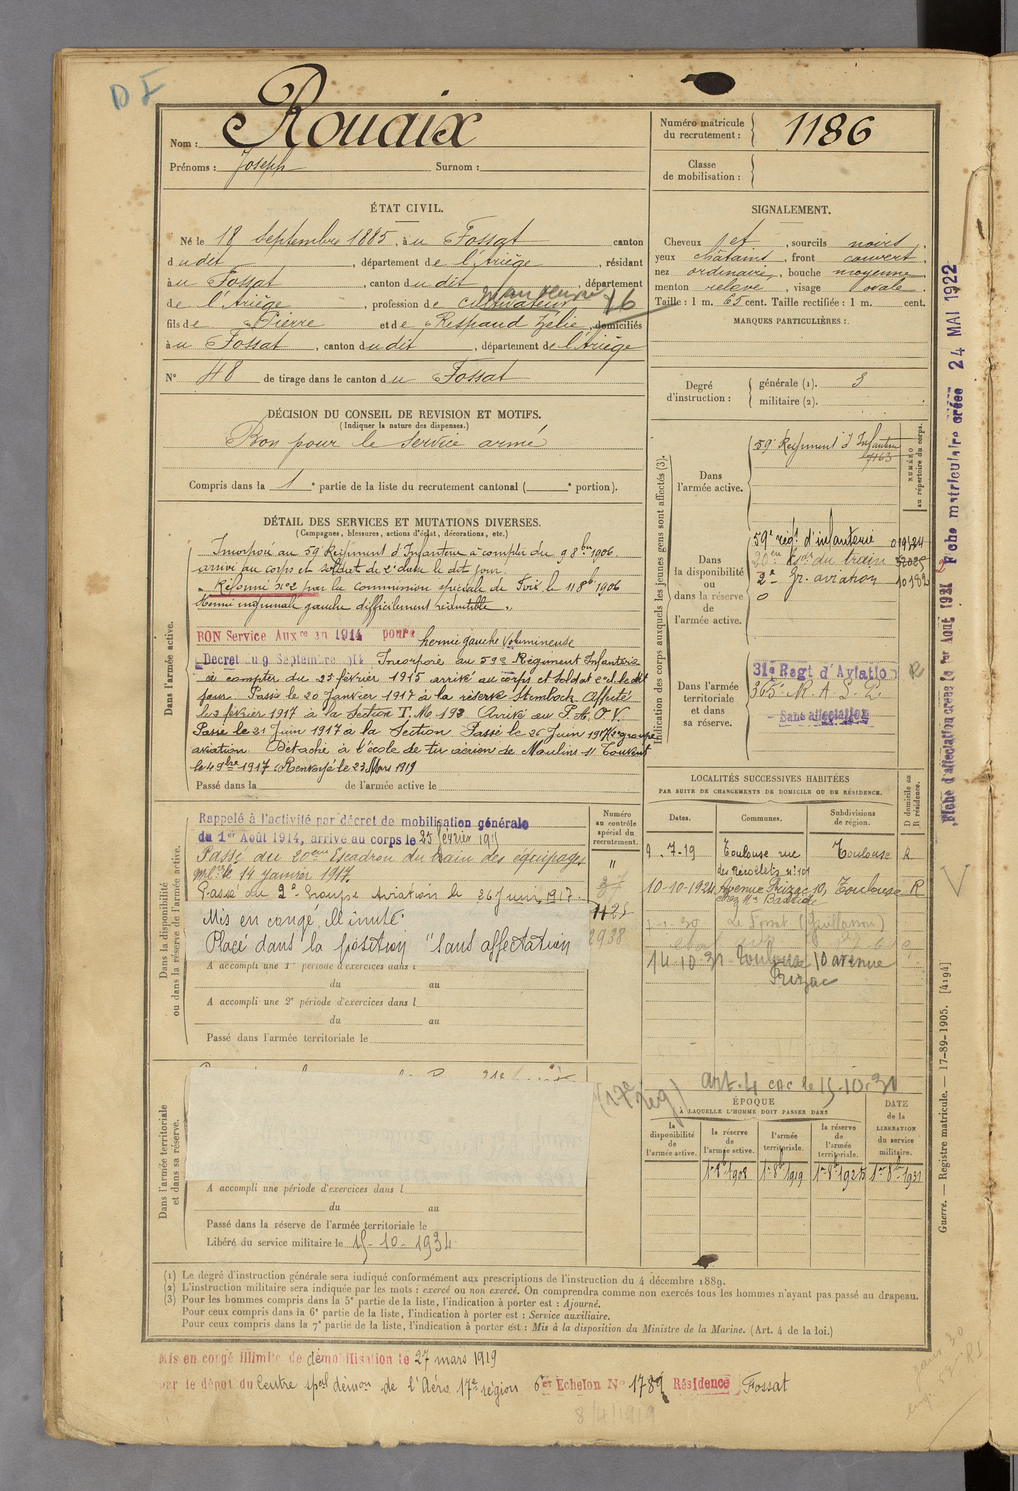 D F
Nom : Rouaix
Prénoms : Joseph Surnom :
Numéro matricule du recrutement : 1186
Classe de mobilisation :
ÉTAT CIVIL.
Né le 18 Septembre 1885, à u Fossat canton
d udit, département de l'Ariège, résidant
à u Fossat, canton du dit, département
de l'Ariège, profession de cultivateur 16
fils de Pierre et de Respaud Zélie, domiciliés
à u Fossat, canton du dit, département de l'Ariège
N° 48 de tirage dans le canton d u Fossat
SIGNALEMENT.
Cheveux et, sourcils noirs,
yeux châtains, front couvert,
nez ordinaire, bouche moyenne,
menton relevé, visage ovale.
Taille : 1 m. 65 cent. Taille rectifiée : 1 m. cent.
MARQUES PARTICULIÈRES :
Degré d'instruction : générale (1). 3
militaire (2).
DÉCISION DU CONSEIL DE REVISION ET MOTIFS.
(Indiquer la nature des dispenses.)
Bon pour le service armé
Compris dans la 1e partie de la liste du recrutement cantonal ( e portion).
DÉTAIL DES SERVICES ET MUTATIONS DIVERSES.
(Campagnes, blessures, actions d'éclat, décorations, etc.)
Dans l'armée active.
Incorporé au 59e Régiment d'Infanterie à compter du 9 8bre 1906.
arrivé au corps et soldat de 2e classe le dit jour.
Réformé n°2 par la commission spéciale de Foix le 11 8bre 1906
hernie inguinale gauche difficilement réductible.
BON Service Auxre en 1914 pour hernie gauche volumineuse
Décret du 9 Septembre 1914 Incorporé au 59e Régiment Infanterie
à compter du 25 février 1915 arrivé au corps et soldat 2e cl. le dit
jour Passé le 20 Janvier 1917 à la réserve Affecté
le 3 février 1917 à la Section T.M. 193 Arrivé au P.A.O.V.
Passé le 21 Juin 1917 à la Section Passé le 26 Juin 1917 2e groupe
aviation Détaché à l'école de tir aérien de Moulins
le 4 9bre 1917 Renvoyé le 23 Mars 1919
Passé dans la de l'armée active le
Indication des corps auxquels les jeunes gens sont affectés (3).
NUMÉRO au répertoire du corps.
Dans l'armée active.
59e Régiment d'Infanterie
7163
Dans la disponibilité ou dans la réserve de l'armée active.
59e régt d'infanterie 019124
20e Esc. du train
2e Gr. aviation 10182
Dans l'armée territoriale et dans sa réserve.
31e Regt d'Aviation R
Sans affectation
LOCALITÉS SUCCESSIVES HABITÉES
PAR SUITE DE CHANGEMENTS DE DOMICILE OU DE RÉSIDENCE.
Dates. Communes. Subdivisions de région. D domicile ou R résidence.
9-7-19 Toulouse rue Toulouse R
des Récollets n° 101
10-10-1924 Avenue Frizac 10, Toulouse R
14-10-31 Toulouse 10 avenue
Frizac
Dans la disponibilité ou dans la réserve de l'armée active.
Numéro au contrôle spécial du recrutement.
Rappelé à l'activité par décret de mobilisation générale
du 1er Août 1914, arrivé au corps le 25 février 1915
Passé au 20eme Escadron du train des équipages
mlre le 14 Janvier 1917
Passé au 2e Groupe Aviation le 26 Juin 1917
1425
2938
Mis en congé illimité
Placé dans la position "sans affectation
A accompli une 1re période d'exercices dans l
du au
A accompli une 2e période d'exercices dans l
du au
Passé dans l'armée territoriale le
Dans l'armée territoriale et dans sa réserve.
(17e rég)
art. 4 CAC le 15-10-31
ÉPOQUE
À LAQUELLE L'HOMME DOIT PASSER DANS
DATE de la LIBÉRATION du service militaire.
la disponibilité de l'armée active.
la réserve de l'armée active.
l'armée territoriale.
la réserve de l'armée territoriale.
1er 8bre 1908 1er 8bre 1919 1er 8bre 1925 1er 8bre 1931
A accompli une période d'exercices dans l
du au
Passé dans la réserve de l'armée territoriale le
Libéré du service militaire le 15-10-1934
(1) Le degré d'instruction générale sera indiqué conformément aux prescriptions de l'instruction du 4 décembre 1889.
(2) L'instruction militaire sera indiquée par les mots : exercé ou non exercé. On comprendra comme non exercés tous les hommes n'ayant pas passé au drapeau.
(3) Pour les hommes compris dans la 5e partie de la liste, l'indication à porter est : Ajourné.
Pour ceux compris dans la 6e partie de la liste, l'indication à porter est : Service auxiliaire.
Pour ceux compris dans la 7e partie de la liste, l'indication à porter est : Mis à la disposition du Ministre de la Marine. (Art. 4 de la loi.)
Mis en congé illimité de démobilisation le 27 mars 1919
par le dépôt du Centre spal démon de l'Aéro 17e région 6e Echelon N° 1789 Résidence Fossat
8/4/1919
Guerre. — Registre matricule. — 17-89-1905. [4194]
Fiche matriculaire créée 24 MAI 1922